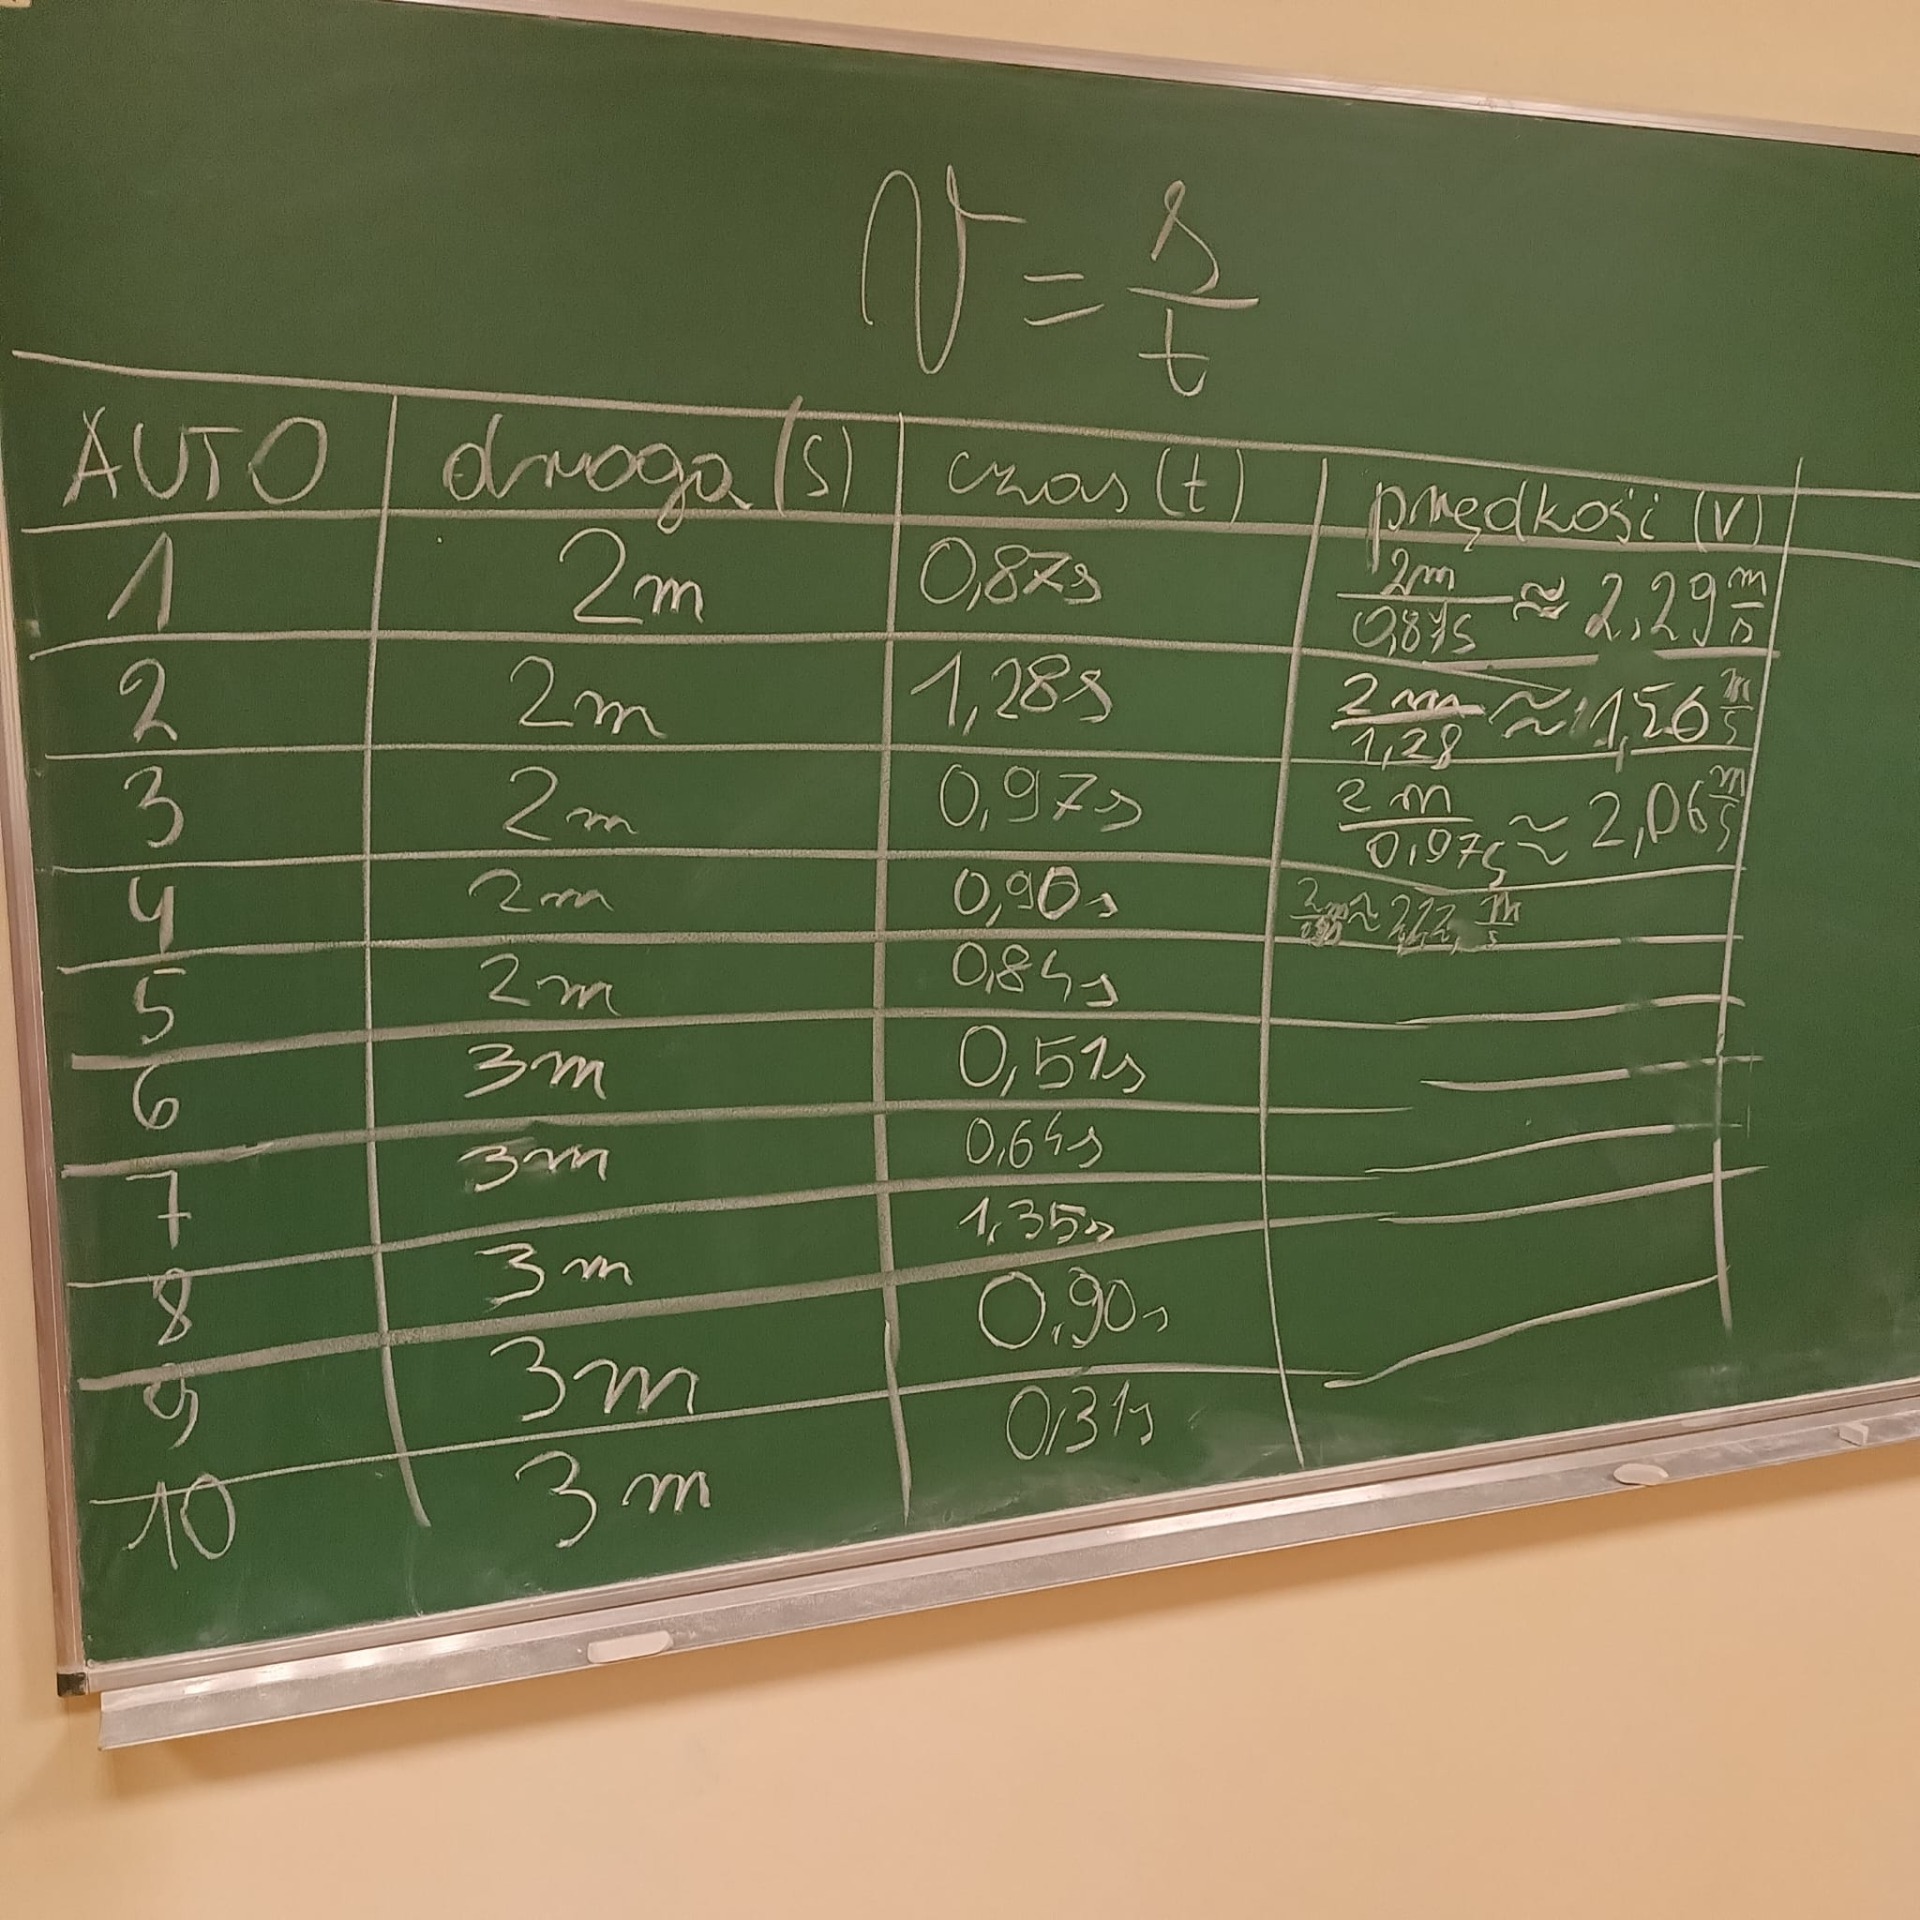 v = s/t
AUTO droga (s) czas (t) prędkość (v)
1 2m 0,87s 2m/0,87s ≈ 2,29 m/s
2 2m 1,28s 2m/1,28 ≈ 1,56 m/s
3 2m 0,97s 2m/0,97s ≈ 2,06 m/s
4 2m 0,90s 2m/0,90 ≈ 2,22 m/s
5 2m 0,84s
6 3m 0,51s
7 3m 0,64s
8 3m 1,35s
9 3m 0,90s
10 3m 0,31s